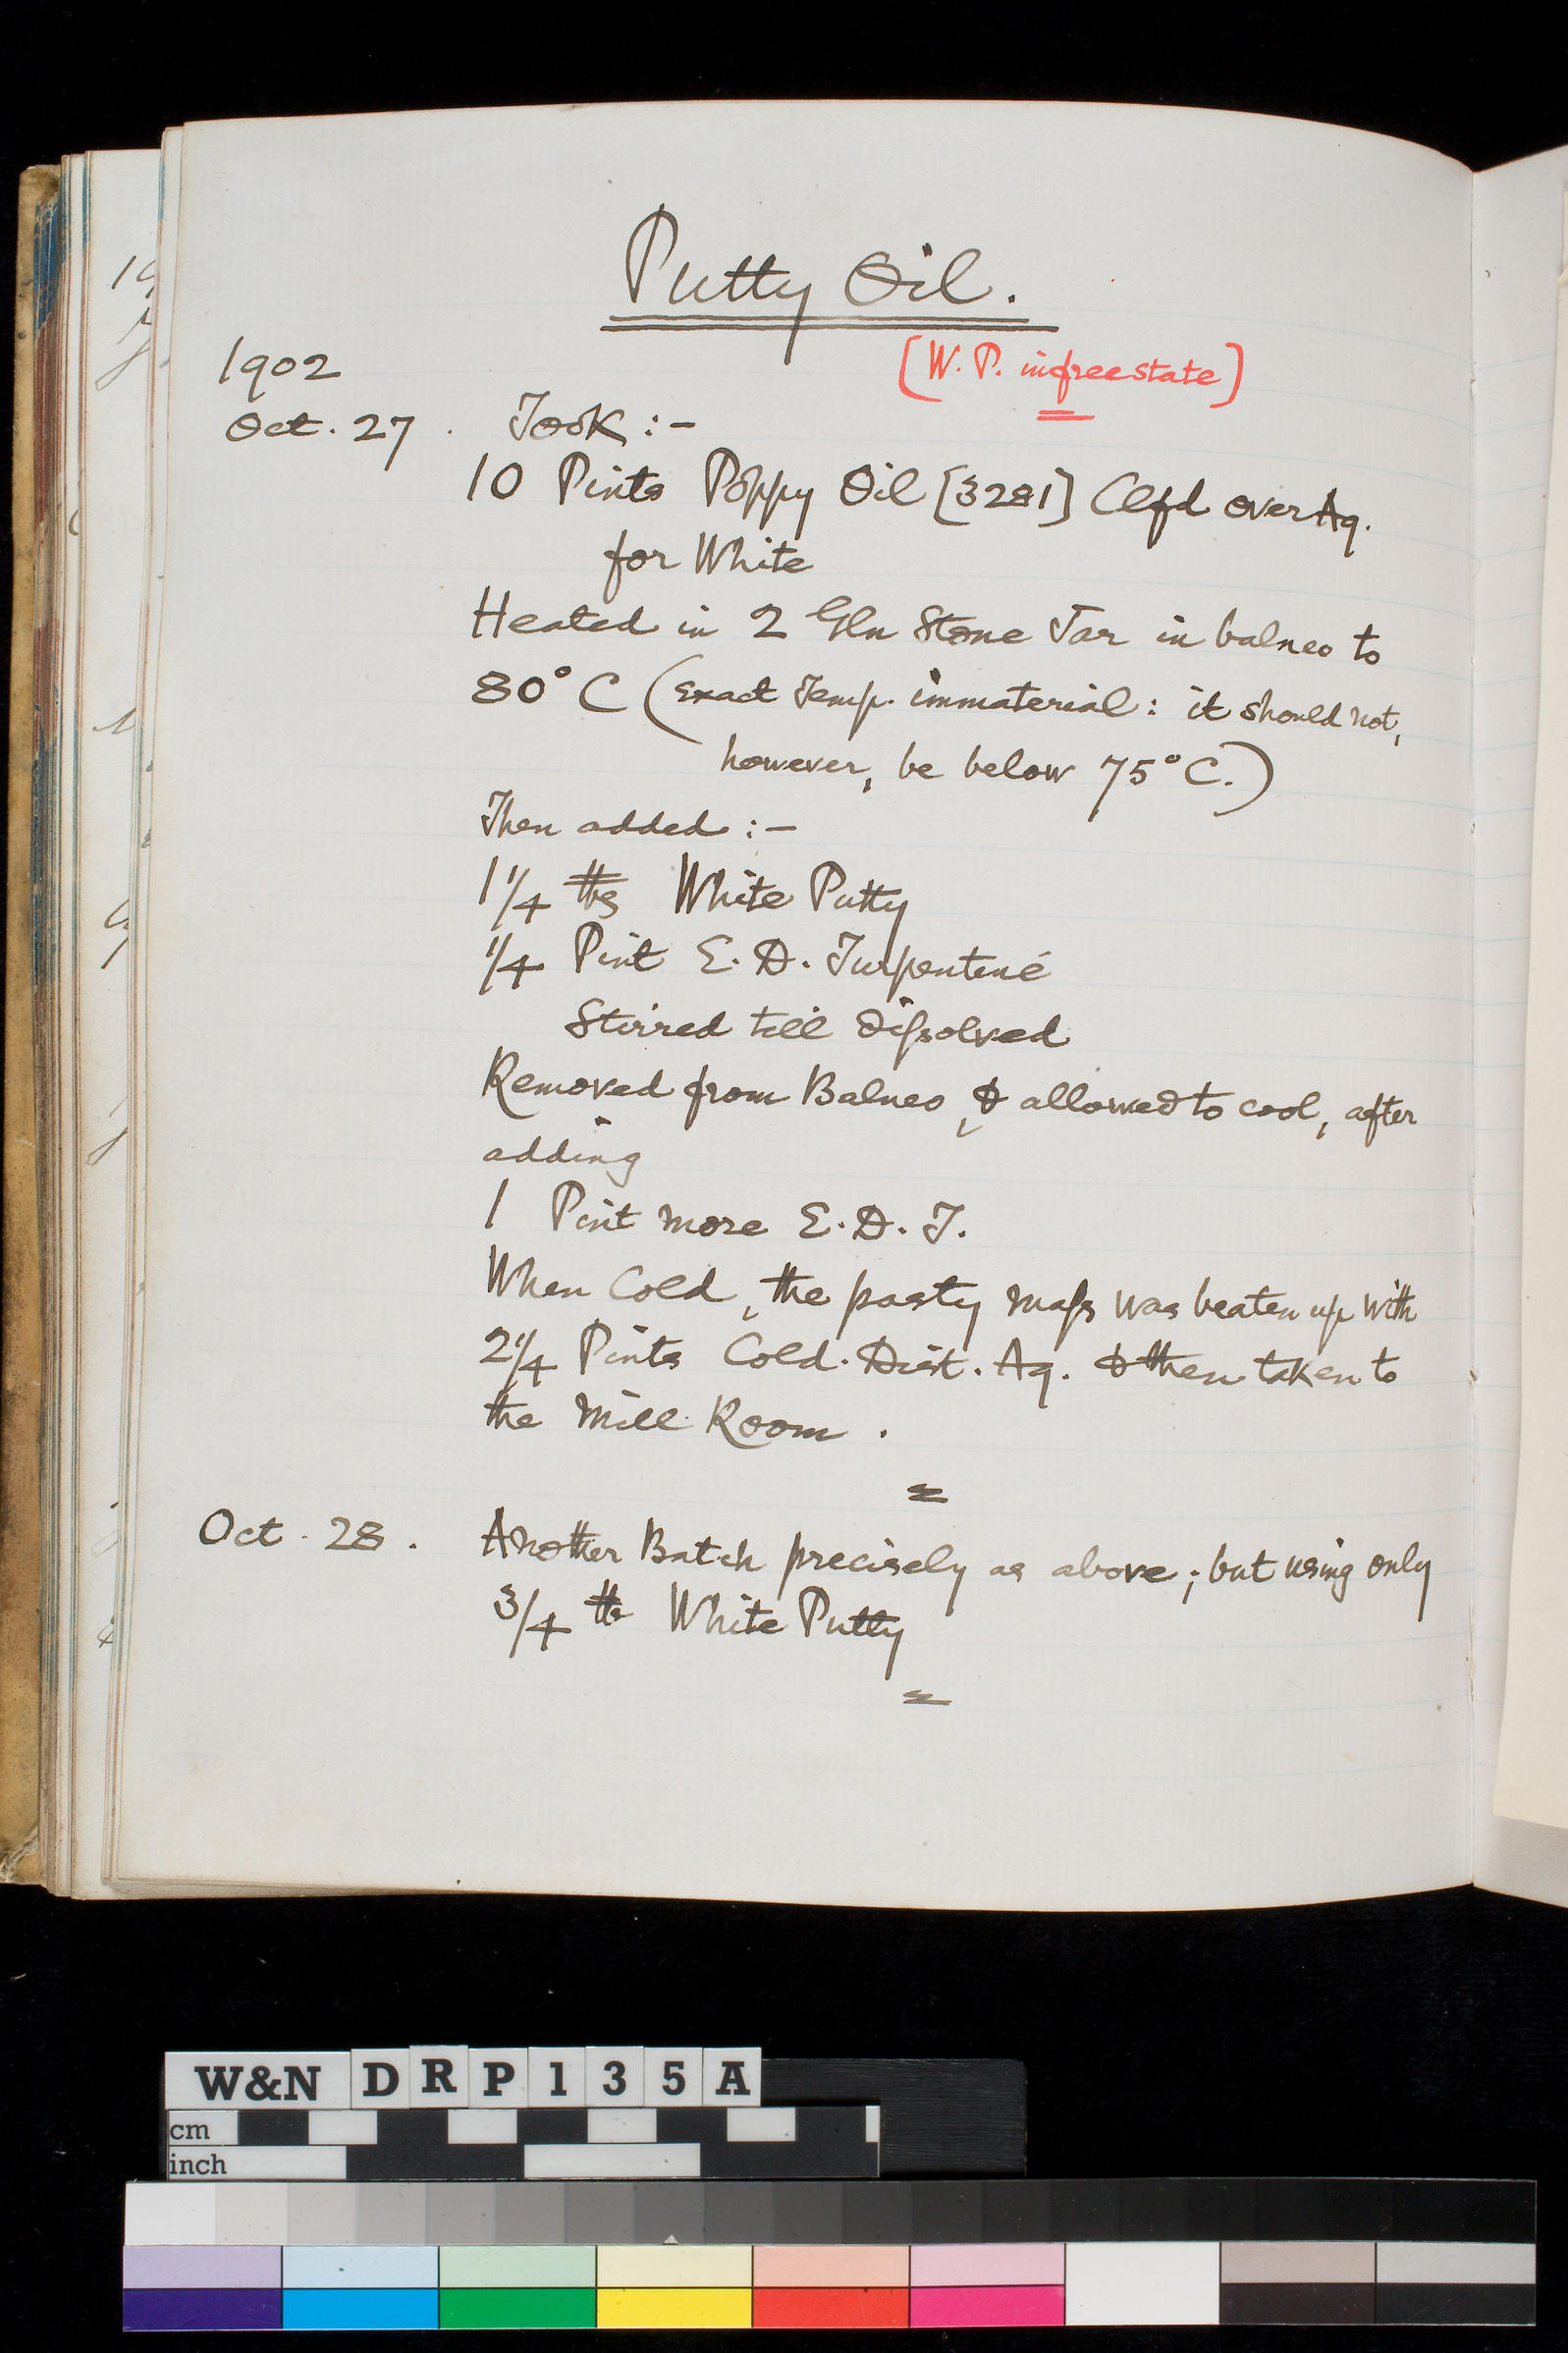 Putty Oil.
[W.P. in free state]
1902
Oct. 27. Took :-
10 Pints Poppy Oil [3281] Clfd over Aq.
for White
Heated in 2 Gln Stone Jar in balneo to
80° C (Exact Temp. immaterial: it should not,
however, be below 75° C.)
Then added :-
1 1/4 lbs White Putty
1/4 Pint E.D. Turpentine
Stirred till dissolved
Removed from Balneo, & allowed to cool, after
adding
1 Pint more E.D.T.
When Cold, the pasty mass was beaten up with
2 1/4 Pints Cold. Dist. Aq. & then taken to
the Mill Room.
Oct. 28. Another Batch precisely as above; but using only
3/4 lb White Putty
W&N DRP135A
cm
inch